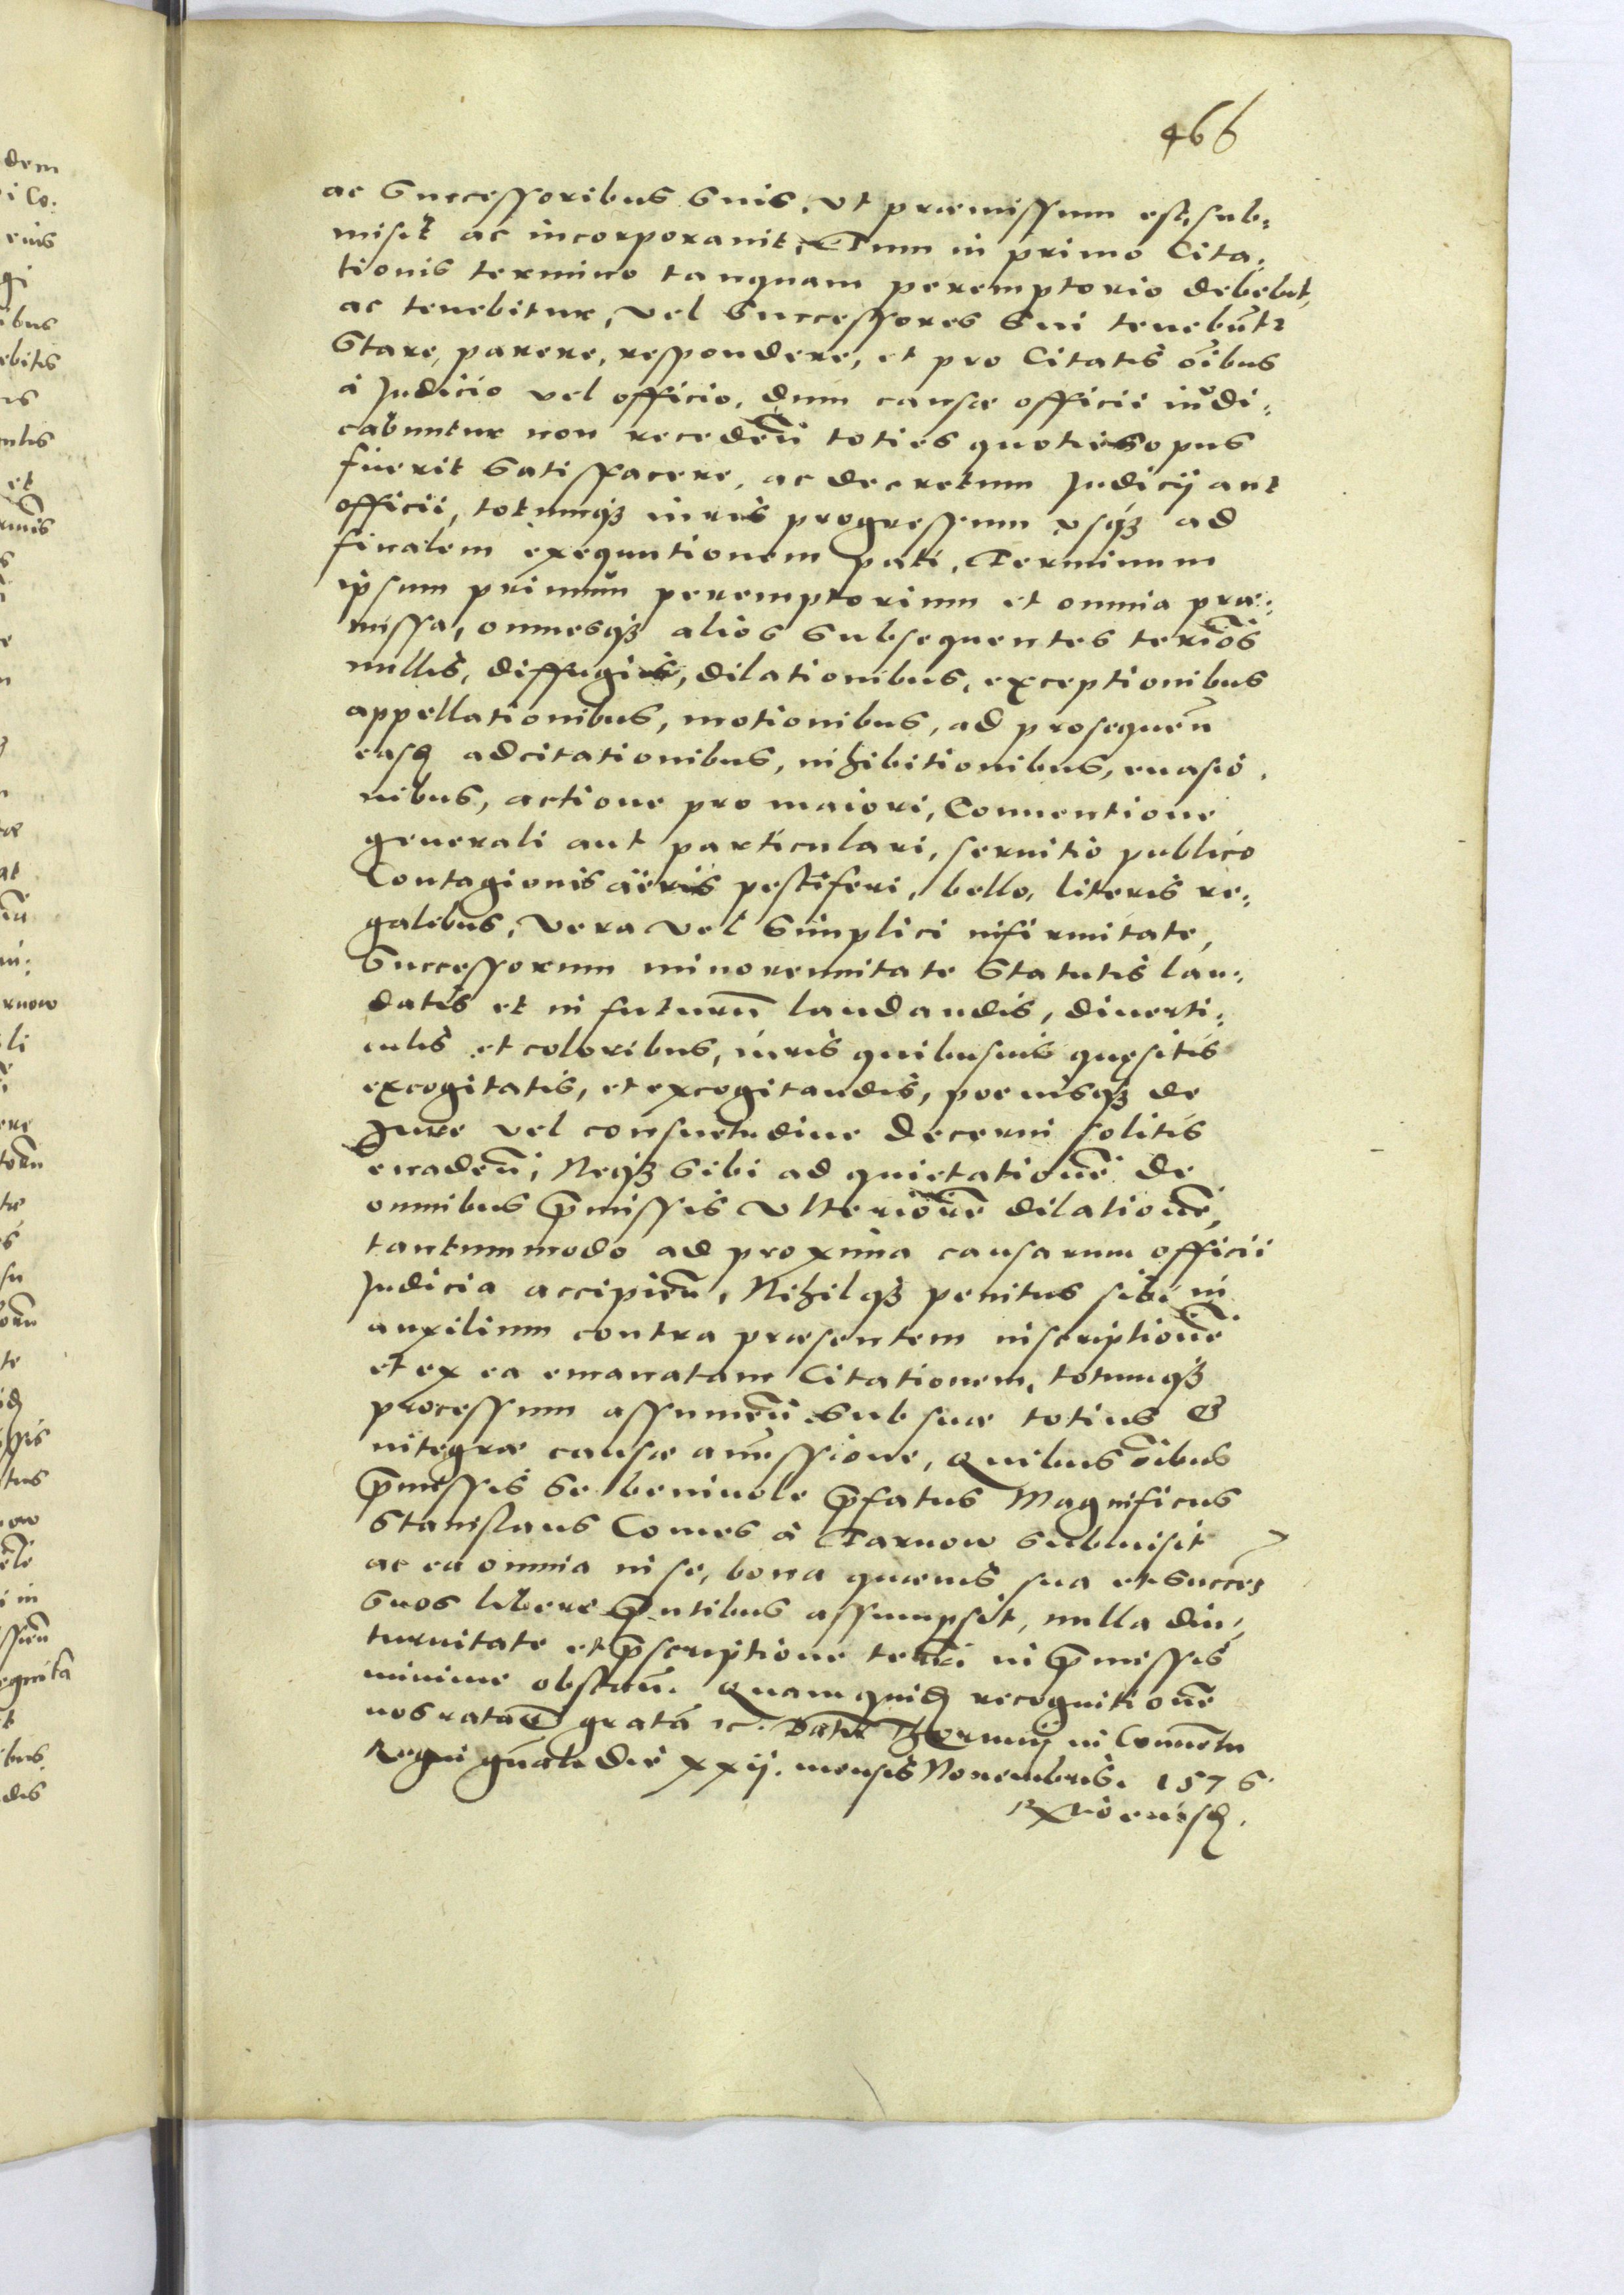 466
ac Successoribus Suis, vt præmissum est, sub:
misit ac incorporauit, Tum in primo Cita:
tionis termino tanquam peremptorio debebit,
ac tenebitur, vel Successores Sui tenebūtr
Stare, parere, respondere, et pro Citatis oībus
à Judicio vel officio, dum causæ officii iudi:
cabuntur non recedeñ toties quoties opus
fuerit Satisfacere, ac decretum Judicij aut
officii, totumqȝ iuris progressum vsqȝ ad
finalem exequutionem pati, Terminum
ipsum primum peremptorium et omnia præ:
missa, omnesqȝ alios Subsequentes termīos
nullis, diffugiis, dilationibus, exceptionibus
appellationibus, motionibus, ad prosequeñ
easd adcitationibus, inhibitionibus, euasio:
nibus, actione pro maiori, Conuentione
generali aut particulari, seruitio publico
Contagionis aëris pestiferi, bello, literis re:
galibus, vera vel Simplici infirmitate,
Successorum minorennitate Statutis lau:
datis et in futurū laudandis, diuerti:
culis et coloribus, iuris quibusuis quęsitis
excogitatis, et excogitandis, poenisqȝ de
Jure vel consuetudine decerni solitis
euadeñ, Neqȝ Sibi ad quietationē de
omnibus p̄missis vlteriorē dilationē,
tantummodo ad proxima causarum officii
Judicia accipieñ, Nihilqȝ penitus sibi in
auxilium contra præsentem inscriptionē
et ex ea emanatam Citationem, totumqȝ
processum assumeñ Sub suæ totius &
integræ causæ amissione, Quibus oībus
p̄missis Se beniuole p̄fatus Magnificus
Stanislaus Comes à Tarnow Submisit
ac ea omnia in se, bona quæuis sua et Succes
Suos libere p̄ntibus assumpsit, nulla diu:
turnitate et p̄scriptione terrē in p̄missis
minime obstañ. Quamquid recognitionē
nos ratā & gratā ꝛc. Datū Thorunij in Conuētu
Regni gñali die xxij. mensis Nouembris. 1576